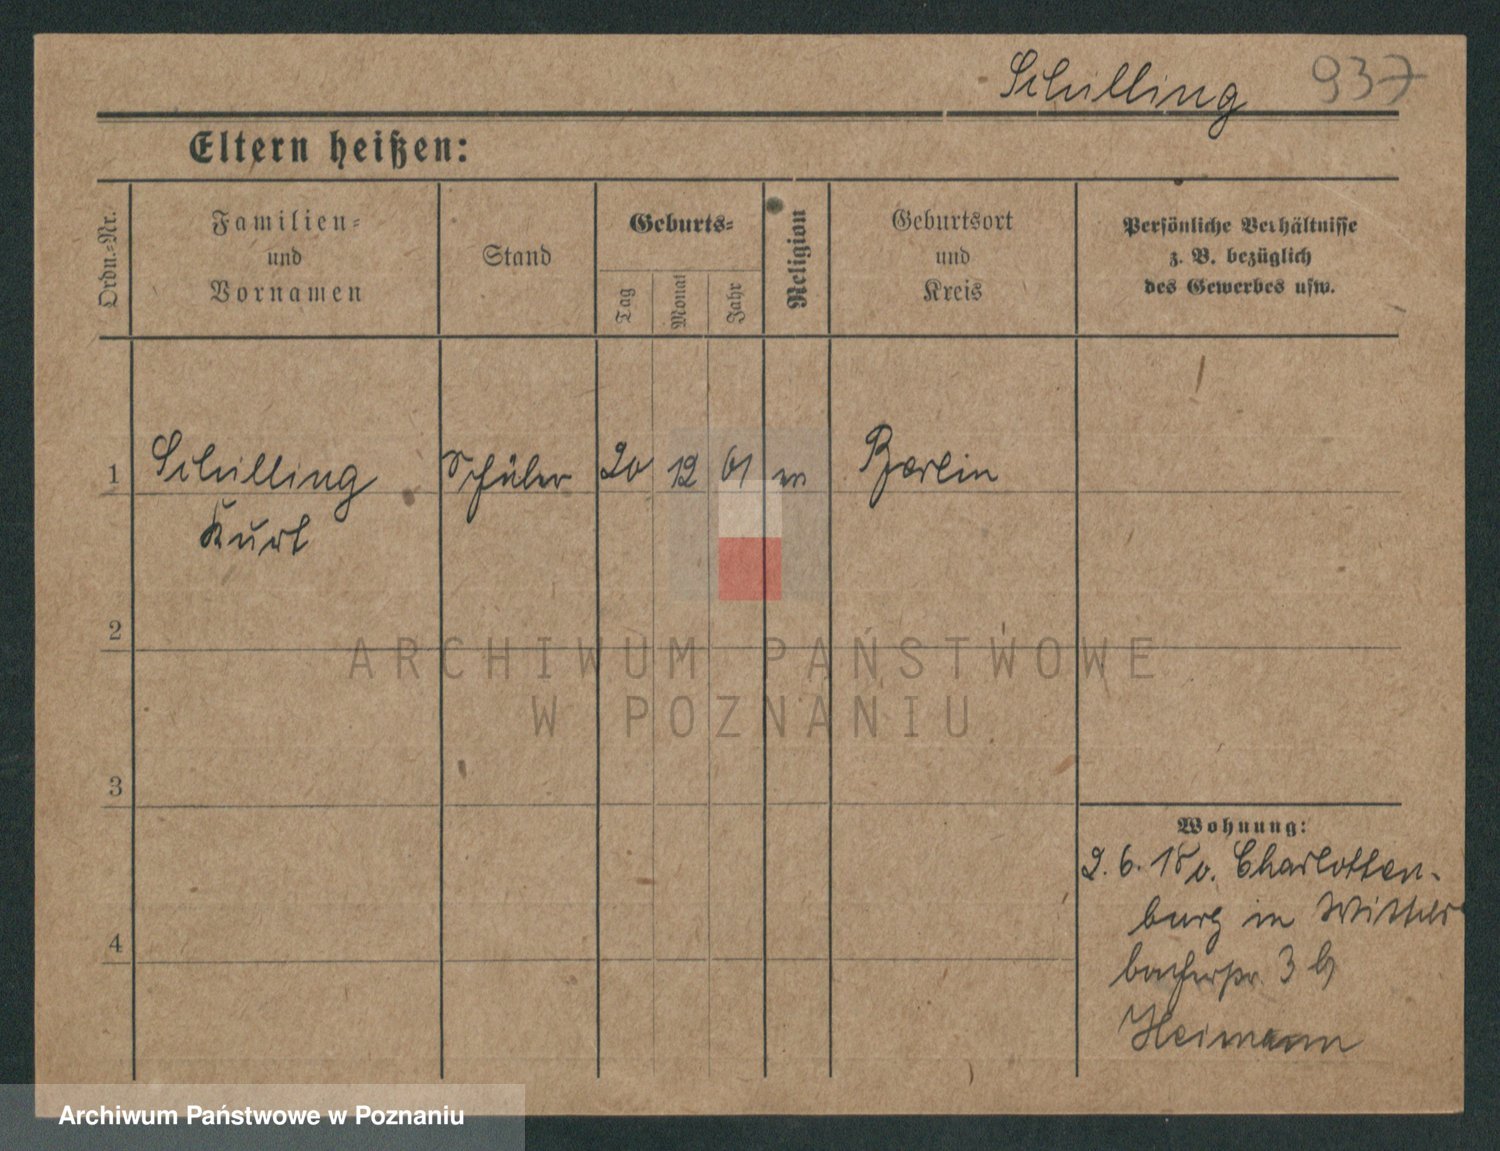 Schilling 937
Eltern heißen:
Ordn.-Nr.
Familien-
und
Vornamen
Stand
Geburts-
Tag
Monat
Jahr
Religion
Geburtsort
und
Kreis
Persönliche Verhältnisse
z. B. bezüglich
des Gewerbes usw.
1 Schilling Schüler 20 12 01 Berlin
Kurt
2
3
4
Wohnung:
2. 6. 18 v. Charlotten-
burg in Wittels
bacherstr. 3 b
Heimann
ARCHIWUM PAŃSTWOWE
W POZNANIU
Archiwum Państwowe w Poznaniu